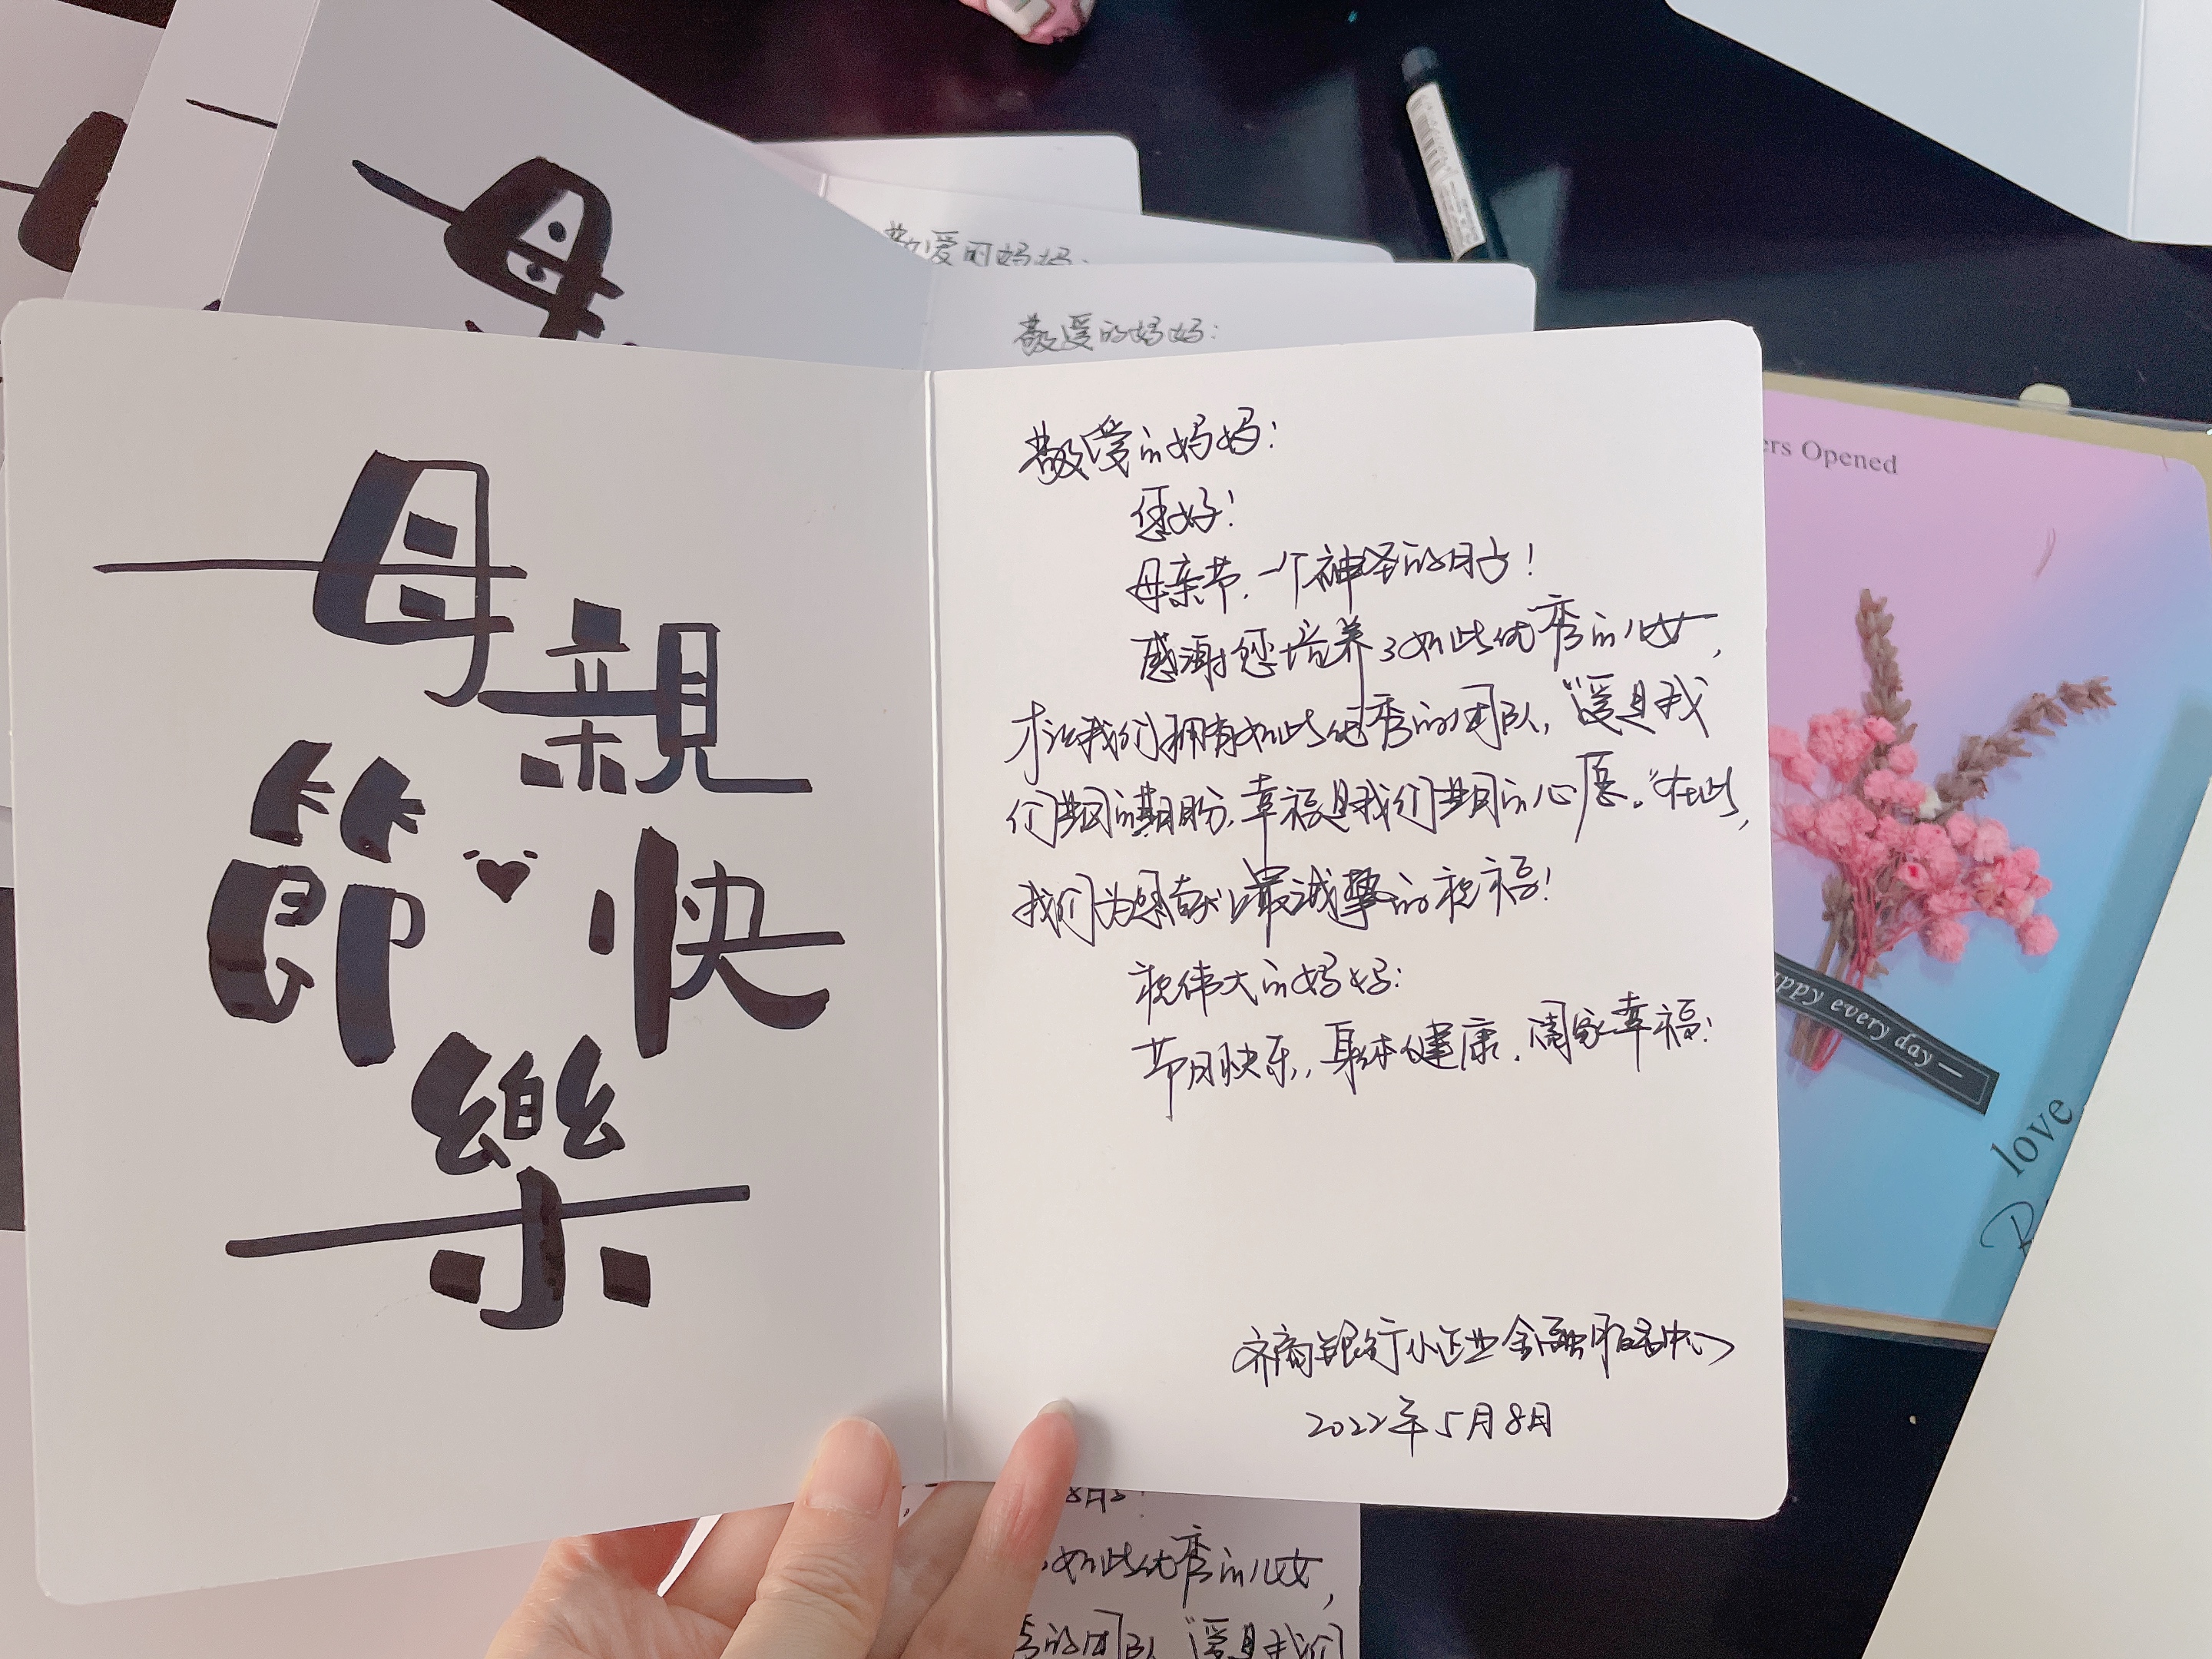 母
親
節
快
樂
敬爱的妈妈:
敬爱的妈妈:
敬爱的妈妈:
您好!
母亲节,一个神圣的日子!
感谢您培养了如此优秀的儿女,
才让我们拥有如此优秀的团队,“爱是我
们共同的期盼,幸福是我们共同的心愿。”在此,
我们为您献上最诚挚的祝福!
祝伟大的妈妈:
节日快乐,身体健康,阖家幸福!
齐商银行小企业金融服务中心
2022年5月8日
如此优秀的儿女,
的团队,“爱是我们
ers Opened
ppy every day —
love